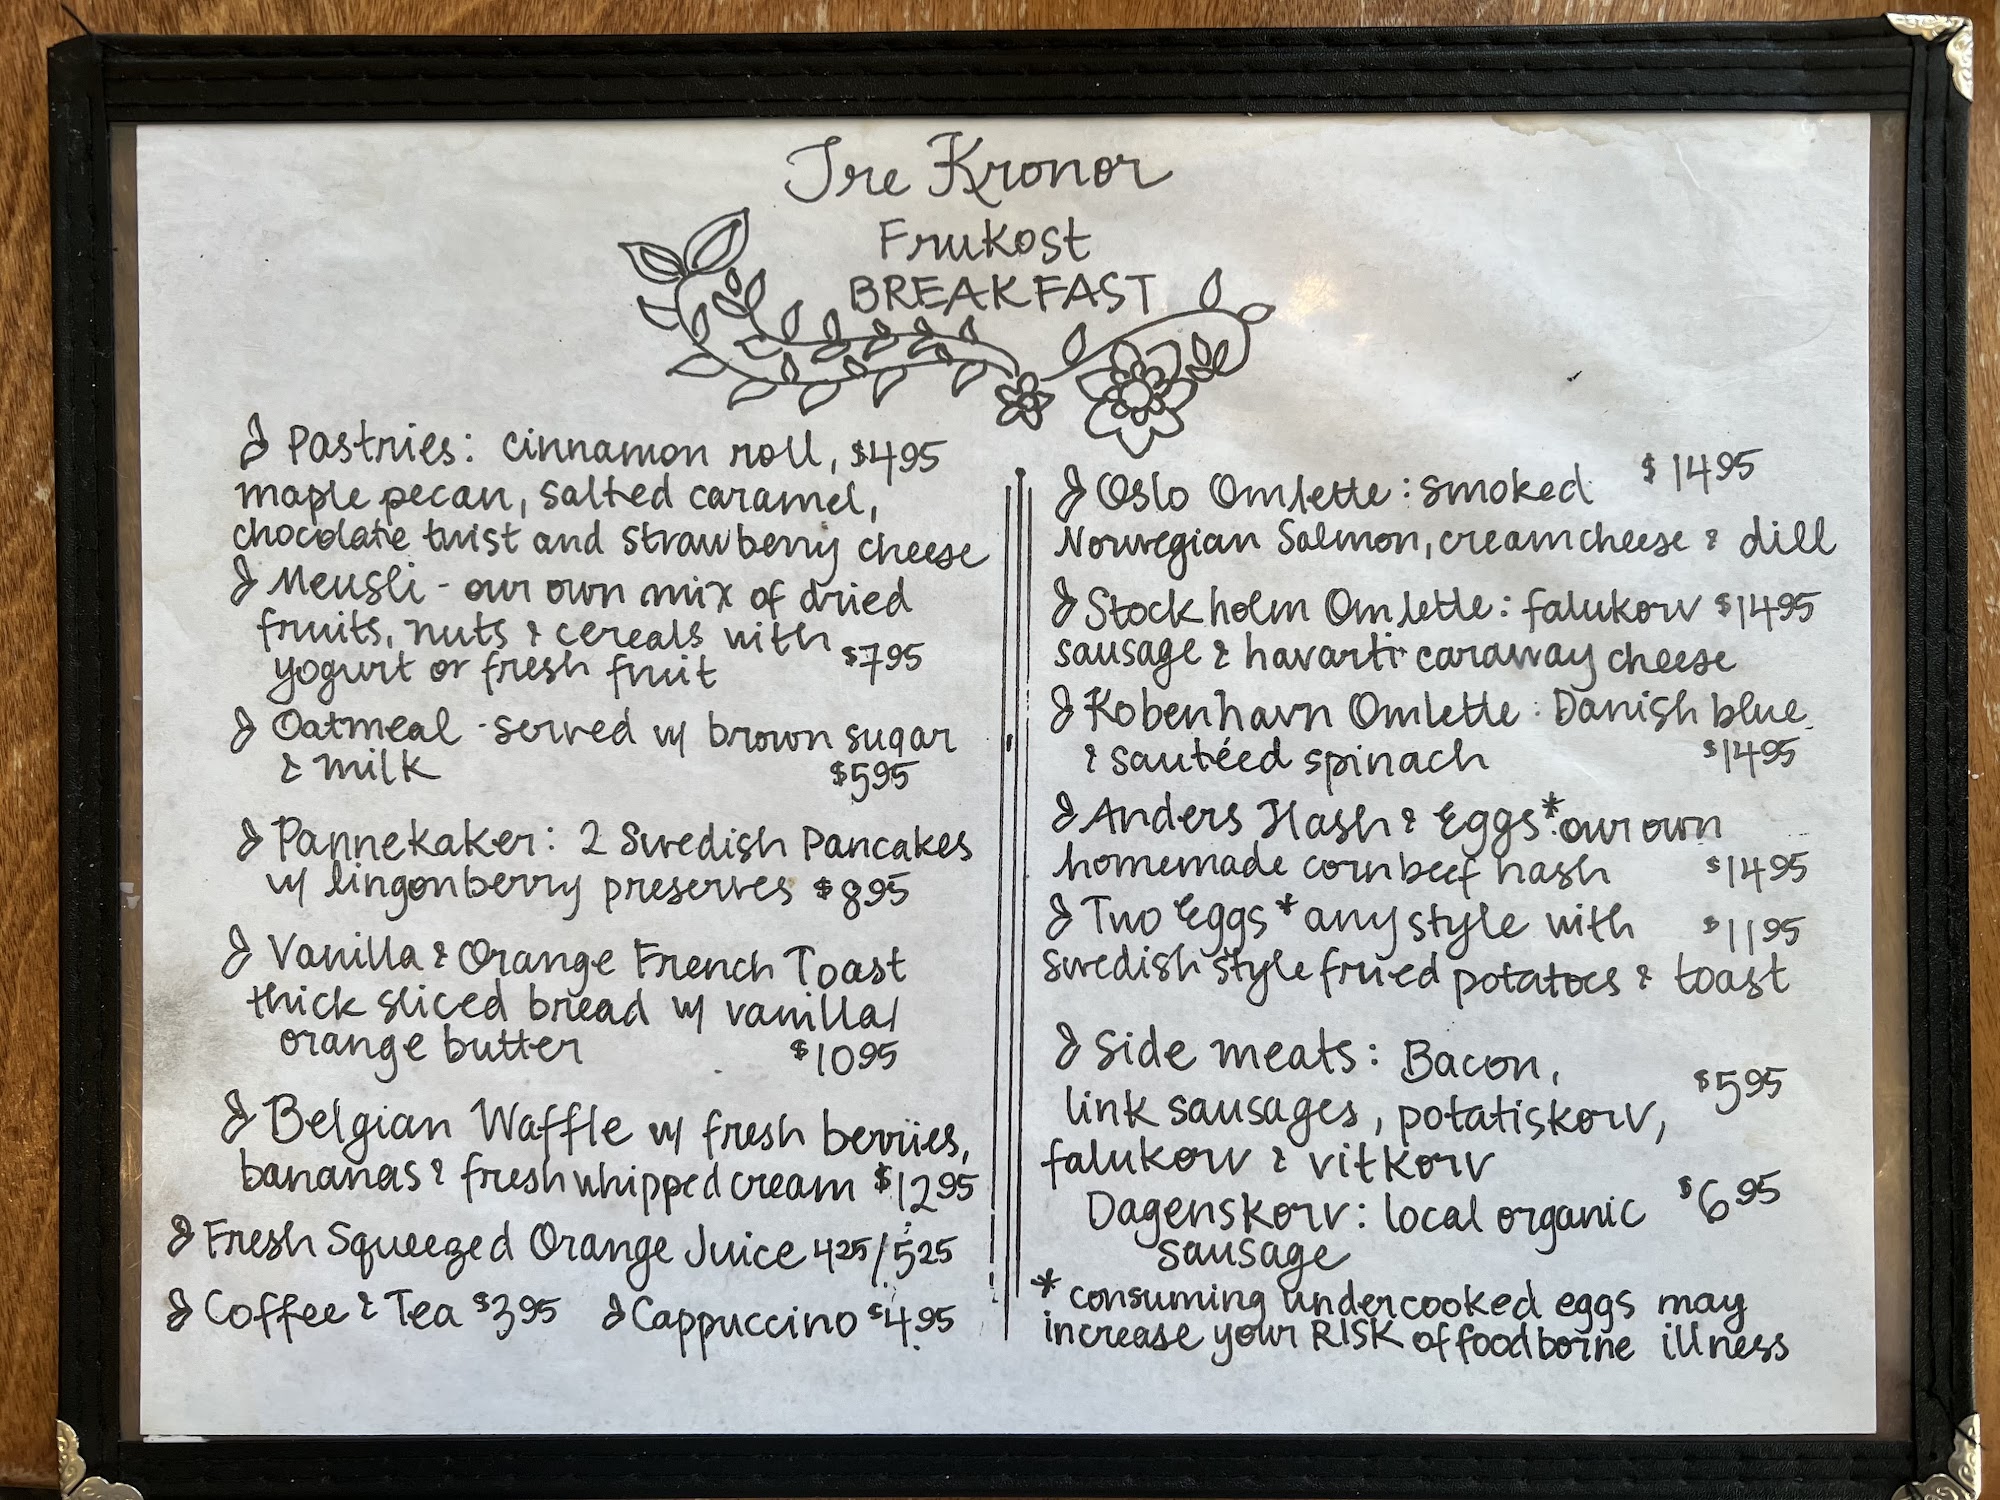 Tre Kronor
Frukost
BREAKFAST
Pastries: cinnamon roll, $4.95
maple pecan, salted caramel,
chocolate twist and strawberry cheese
Meusli - our own mix of dried
fruits, nuts & cereals with
yogurt or fresh fruit $7.95
Oatmeal - served w/ brown sugar
& milk $5.95
Pannekaker: 2 Swedish Pancakes
w/ lingonberry preserves $8.95
Vanilla & Orange French Toast
thick sliced bread w/ vanilla/
orange butter $10.95
Belgian Waffle w/ fresh berries,
bananas & fresh whipped cream $12.95
Fresh Squeezed Orange Juice 4.25/5.25
Coffee & Tea $3.95 Cappuccino $4.95
Oslo Omlette: smoked $14.95
Norwegian Salmon, creamcheese & dill
Stockholm Omlette: falukorv $14.95
sausage & havarti caraway cheese
Kobenhavn Omlette: Danish blue
& sautéed spinach $14.95
Anders Hash & Eggs*: our own
homemade cornbeef hash $14.95
Two Eggs* any style with $11.95
Swedish style fried potatoes & toast
Side meats: Bacon,
link sausages, potatiskorv, $5.95
falukorv & vitkorv
Dagenskorv: local organic $6.95
sausage
* consuming undercooked eggs may
increase your RISK of foodborne illness